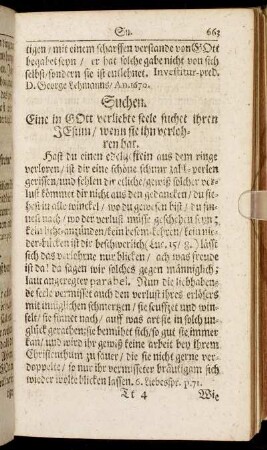 Su. 663
tigen / mit einem scharffen verstande von GOtt
begabet seyn / er hat solche gabe nicht von sich
selbst / sondern sie ist entlehnet. Investitur-pred.
D. George Lehmanns / An. 1670.
Suchen.
Eine in GOtt verliebte seele suchet ihren
JEsum / wenn sie ihn verloh-
ren hat.
Hast du einen edelgestein aus dem ringe
verloren / ist dir eine schöne schnur zahl-perlen
gerissen / und fehlen dir etliche / gewiß solcher ver-
lust kömmet dir nicht aus den gedancken / du sie-
hest in alle winckel / wo du gewesen bist / du sin-
nest nach / wo der verlust müsse geschehen seyn;
kein licht-anzünden / kein besem-kehren / kein nie-
der-bücken ist dir beschwerlich (Luc. 15 / 8.) lässt
sich das verlohrne nur blicken / ach was freude
ist da! da sagen wir solches gegen männiglich;
laut angeregter parabel. Nun die liebhaben-
de seele vermisset auch den verlust ihres erlösers
mit müglichen schmertzen / sie seuffzet und win-
selt / sie sinnet nach / auff was art sie in solch un-
glück gerathen; sie bemühet sich / so gut sie immer
kan / und wird ihr gewiß keine arbeit bey ihrem
Christenthum zu sauer / die sie nicht gerne ver-
doppelte / so nur ihr vermisseter bräutigam sich
wieder wolte blicken lassen. 6. Liebesspr. p. 71.
Tt 4 Wie